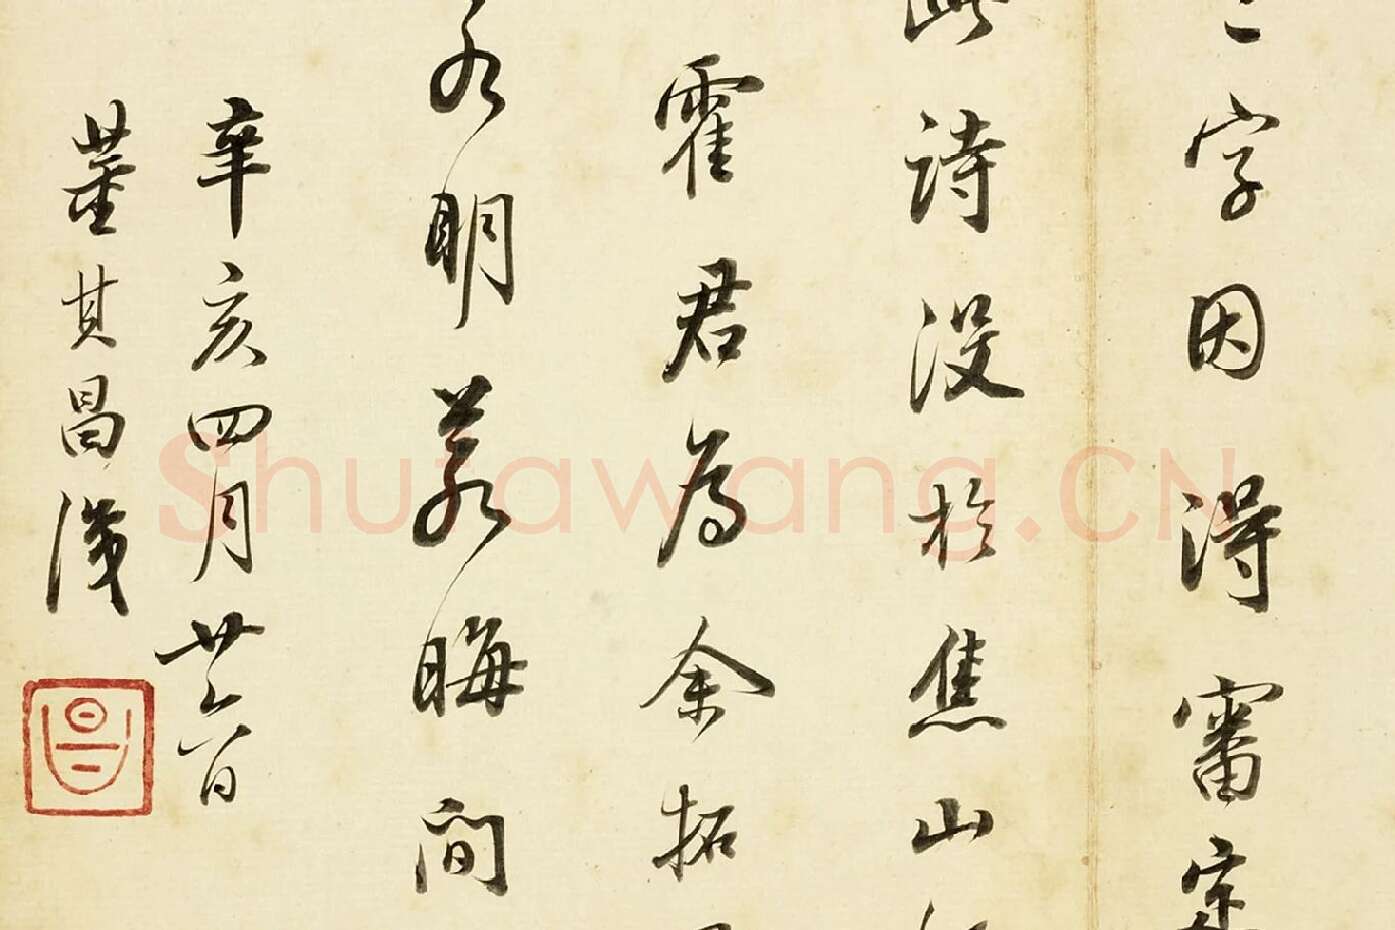 二字因得審定
此詩没於焦山
霍君為余拓
若明若晦間
辛亥四月廿六日
董其昌識
昌
Shufawang.CN